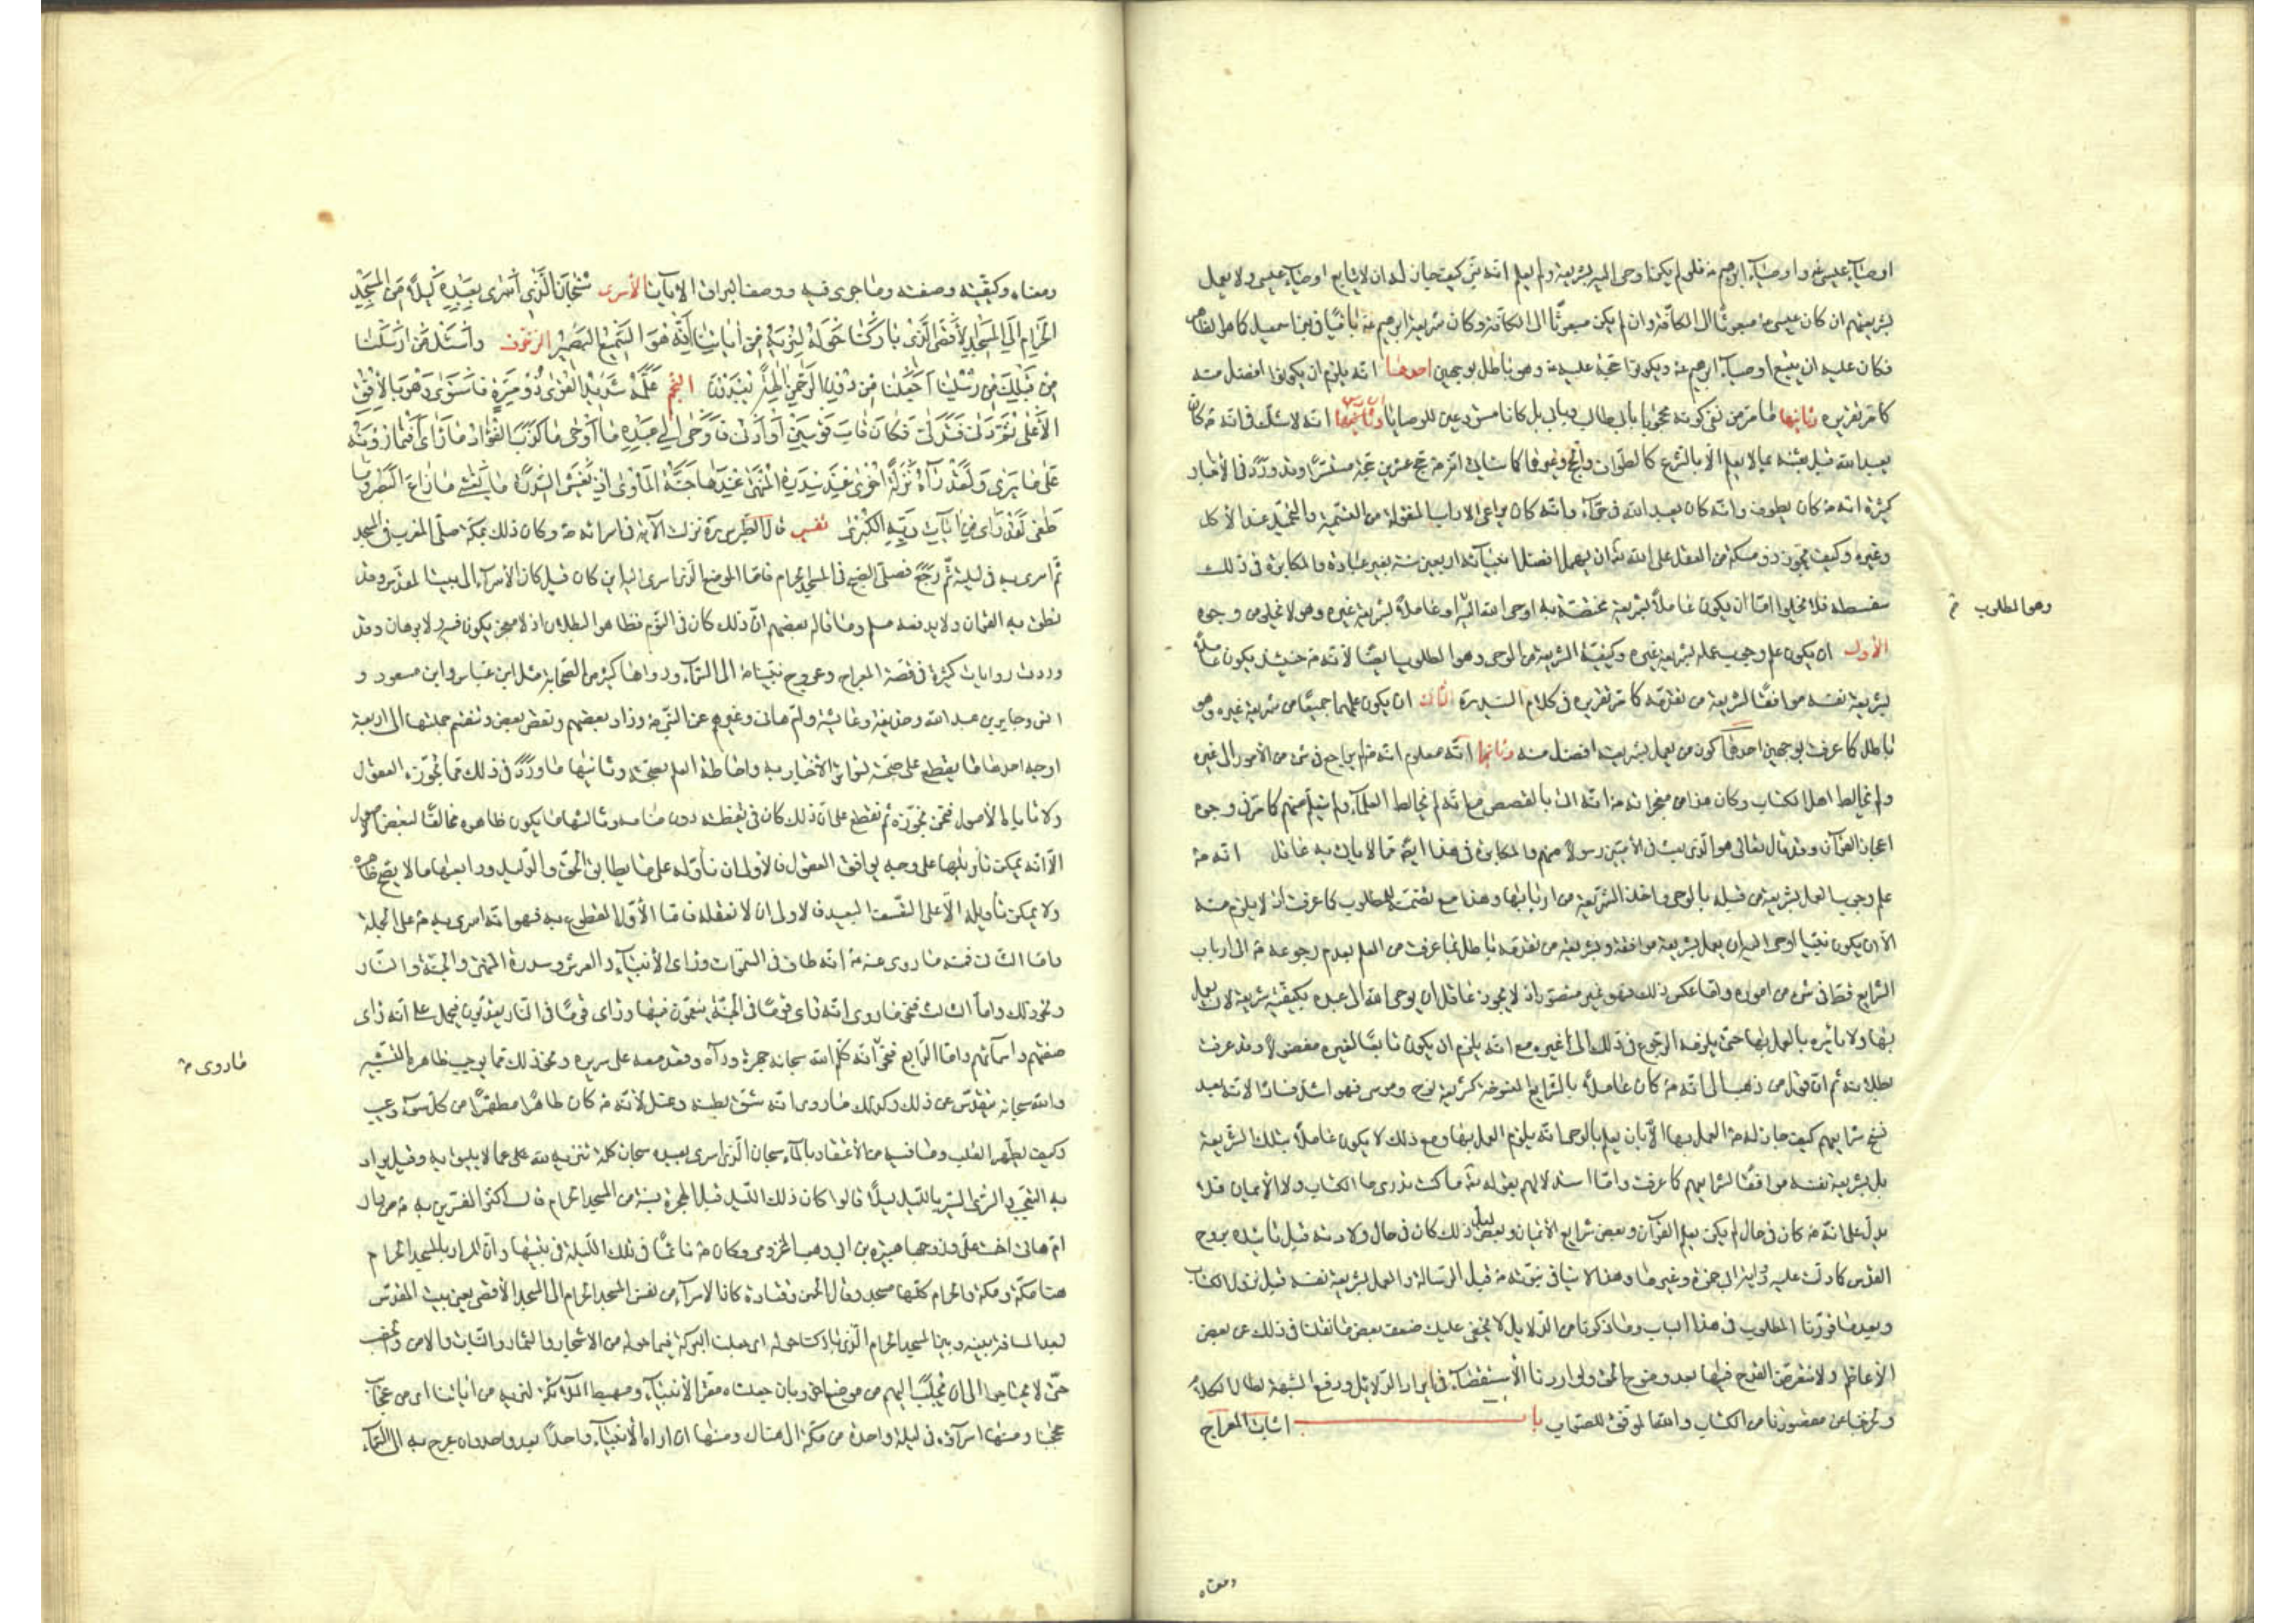 اوصيآء عيسى ع واوصيآء ابرهيم ع فلو لم يكن اوحى اليه بشريعة ولم يعلم انه نبى كيف جاز له ان لا يتابع اوصيآء عيسى ولا يعمل
بشريعتهم ان كان عيسى ع مبعوثا الى الكافة وان لم يكن مبعوثا الى الكافة وكان شريعة ابرهيم ع باقيا فى بنى اسمعيل كما هو الظاهر
فكان عليه ان يتبع اوصيآء ابرهيم ع ويكونوا حجة عليه ص وهو باطل بوجهين احدهما انه يلزم ان يكونوا افضل منه
كما مر تقريره وثانيها ما مر من نفى كونه محجوجا بابى طالب وبابى بل كانا مستودعين للوصايا وثانيها انه لا شك فى انه ص كان
يعبد الله قبل بعثته بما لا يعلم الا بالشرع كالطواف والحج وغيرهما كما سياتى انه ص حج عشرين حجة مستسرا وقد ورد فى الاخبار
كثيرة انه ص كان يطوف وانه كان يعبد الله فى حرآء وانه كان يراعى الاداب المنقولة من التسمية والتحميد عند الاكل
وغيره وكيف يجوز ذو مسكة من العقل على الله تعالى ان يهمل افضل انبيآئه اربعين سنة بغير عبادة والمكابرة فى ذلك
سفسطة فلا يخلوا اما ان يكون عاملا بشريعة مختصة به اوحى الله اليه او عاملا بشريعة غيره وهو لا يخلو من وجوه
وهو المطلوب
الاول ان يكون علم وجوب عمله بشريعة غيره وكيفية الشريعة من الوحى وهو المطلوب ايضا لانه ص حينئذ يكون عاملا
بشريعة نفسه موافقا لشريعة من تقدمه كما مر تقريره فى كلام السيد ره الثانى ان يكون علمهما جميعا من شريعة غيره وهو
باطل كما عرفت بوجهين احدهما كون من يعمل بشريعته افضل منه وثانيها انه معلوم انه ص لم يراجع فى شئ من الامور الى غيره
ولم يخالط اهل الكتاب وكان هذا من معجزاته ص انه اتى بالقصص مع انه لم يخالط العلمآء ولم يتعلم منهم كما مر فى وجوه
اعجاز القرآن وقد قال تعالى هو الذى بعث فى الاميين رسولا منهم والمكابرة فى هذا ايضا مما لا ياتى به عاقل انه ص
علم وجوب العمل بشريعة من قبله بالوحى واخذ الشريعة من اربابها وهذا مع تضمنه للمطلوب كما عرفت اذ لا يلزم منه
الا ان يكون نبيا اوحى اليه ان يعمل بشريعة موافقة لشريعة من تقدمه باطل بما عرفت من العلم بعدم رجوعه ص الى ارباب
الشرايع قط فى شئ من اموره واما عكس ذلك فهو غير متصور اذ لا يجوز عاقل ان يوحى الله الى عبده بكيفية شريعة لان يعمل
بها ولا يامره بالعمل بها حتى يلزمه الرجوع فى ذلك الى غيره مع انه يلزم ان يكون تابعا لغيره مفضولا وقد عرفت
بطلانه ثم ان قول من ذهب الى انه ص كان عاملا بالشرايع المنسوخة كشريعة نوح وموسى فهو اشد فسادا لانه بعد
نسخ شرايعهم كيف جاز له ص العمل بها الا بان يعلم بالوحى انه يلزم العمل بها ومع ذلك لا يكون عاملا بتلك الشريعة
بل بشريعة نفسه موافقا لشرايعهم كما عرفت واما استدلالهم بقوله تعالى ما كنت تدرى ما الكتاب ولا الايمان فلا
يدل على انه ص كان فى حال لم يكن يعلم القرآن وبعض شرايع الايمان ولعل ذلك كان فى حال ولادته قبل تاييده بروح
القدس كما دلت عليه رواية ابى حمزة وغيرها وهذا لا ينافى نبوته ص قبل الرسالة والعمل بشريعة نفسه قبل نزول الكتاب
وبعد ما قررنا المطلوب فى هذا الباب وما ذكرنا من الدلايل لا يخفى عليك ضعف بعض ما نقلنا فى ذلك عن بعض
الاعاظم ولا نتعرض للقدح فيها بعد وضوح الحق ولو اردنا الاستقصآء فى ايراد الدلايل ودفع الشبهة لطال الكلام
ولخرجنا عن مقصودنا من الكتاب والله الموفق للصواب باب اثبات المعراج
ومعناه
ومعناه وكيفيته وصفته وما جرى فيه ووصف البراق الآيات الأسرى سُبْحَانَ الَّذِى أَسْرَى بِعَبْدِهِ لَيْلاً مِنَ الْمَسْجِدِ
الْحَرَامِ إِلَى الْمَسْجِدِ الأَقْصَى الَّذِى بَارَكْنَا حَوْلَهُ لِنُرِيَهُ مِنْ آيَاتِنَا إِنَّهُ هُوَ السَّمِيعُ الْبَصِيرُ الزخرف وَاسْئَلْ مَنْ أَرْسَلْنَا
مِنْ قَبْلِكَ مِنْ رُسُلِنَا أَجَعَلْنَا مِنْ دُونِ الرَّحْمنِ آلِهَةً يُعْبَدُونَ النجم عَلَّمَهُ شَدِيدُ الْقُوَى ذُو مِرَّةٍ فَاسْتَوَى وَهُوَ بِالأُفُقِ
الأَعْلَى ثُمَّ دَنَى فَتَدَلَّى فَكَانَ قَابَ قَوْسَيْنِ أَوْ أَدْنَى فَأَوْحَى إِلَى عَبْدِهِ مَا أَوْحَى مَا كَذَبَ الْفُؤَادُ مَا رَأَى أَفَتُمَارُونَهُ
عَلَى مَا يَرَى وَلَقَدْ رَآهُ نَزْلَةً أُخْرَى عِنْدَ سِدْرَةِ الْمُنْتَهَى عِنْدَهَا جَنَّةُ الْمَأْوَى إِذْ يَغْشَى السِّدْرَةَ مَا يَغْشَى مَا زَاغَ الْبَصَرُ وَمَا
طَغَى لَقَدْ رَأَى مِنْ آيَاتِ رَبِّهِ الْكُبْرَى تفسير قال الطبرسى ره نزلت الآية فى اسرائه ص وكان ذلك بمكة صلى المغرب فى المسجد
ثم اسرى به فى ليلته ثم رجع فصلى الصبح فى المسجد الحرام فاما الموضع الذى اسرى اليه اين كان قيل كان الاسرآء الى بيت المقدس وقد
نطق به القرآن ولا يدفعه مسلم وما قاله بعضهم ان ذلك كان فى النوم فظاهر البطلان اذ لا معجز يكون فيه ولا برهان وقد
وردت روايات كثيرة فى قصة المعراج وعروج نبينا ص الى السمآء ورواها كثير من الصحابة مثل ابن عباس وابن مسعود و
انس وجابر بن عبد الله وحذيفة وعائشة وام هانى وغيرهم عن النبى ص وزاد بعضهم ونقص بعض وتنقسم جملتها الى اربعة
اوجه احدها ما يقطع على صحته لتواتر الاخبار به واحاطة العلم بصحته وثانيها ما ورد فى ذلك مما تجوزه العقول
ولا تاباه الاصول فنحن نجوزه ثم نقطع على ان ذلك كان فى يقظته دون منامه وثالثها ما يكون ظاهره مخالفا لبعض الاصول
الا انه يمكن تأويلها على وجه يوافق العقول فالاولى ان نأوله على ما يطابق الحق والدليل ورابعها ما لا يصح ظاهره
ولا يمكن تأويله الا على التعسف البعيد فالاولى ان لا نقبله فاما الاول المقطوع به فهو انه اسرى به ص على الجملة
واما الثانى فمنه ما روى عنه ص انه طاف فى السموات ورأى الانبيآء والعرش وسدرة المنتهى والجنة والنار
ونحو ذلك واما الثالث فنحو ما روى انه رأى قوما فى الجنة يتنعمون فيها ورأى قوما فى النار يعذبون فيحمل على انه رأى
صفتهم واسمآئهم واما الرابع فنحو انه كلم الله سبحانه جهرة ورآه وقعد معه على سريره ونحو ذلك مما يوجب ظاهره التشبيه
ما روى
والله سبحانه متقدس عن ذلك وكذلك ما روى انه شق بطنه وغسل لانه ص كان طاهرا مطهرا من كل سوء وعيب
وكيف يطهر القلب وما فيه من الاعتقاد بالمآء سبحان الذى اسرى بعبده سبحان كلمة تنزيه لله على عما لا يليق به وقيل يراد
به التعجب والسرى السير بالليل ليلا قالوا كان ذلك الليل قبل الهجرة بسنة من المسجد الحرام قال اكثر المفسرين اسرى به ص من دار
ام هانى اخت على وزوجها هبيرة بن ابى وهب المخزومى وكان ص نائما فى تلك الليلة فى بيتها وان المراد بالمسجد الحرام
هنا مكة ومكة والحرام كلها مسجد وقال الحسن وقتادة كان الاسرآء من نفس المسجد الحرام الى المسجد الاقصى يعنى بيت المقدس
لبعد المسافة بينه وبين المسجد الحرام الذى باركنا حوله اى جعلنا البركة فيما حوله من الاشجار والثمار والنبات والامن والخصب
حتى لا يحتاجوا الى ان يجلب اليهم من موضع اخر وبان جعلناه مقر الانبيآء ومهبط الملائكة لنريه من آياتنا اى من عجايب
حججنا ومنها اسرآؤه فى ليلة واحدة من مكة الى هناك ومنها ان اراه الانبيآء واحدا بعد واحد وان عرج به الى السمآء